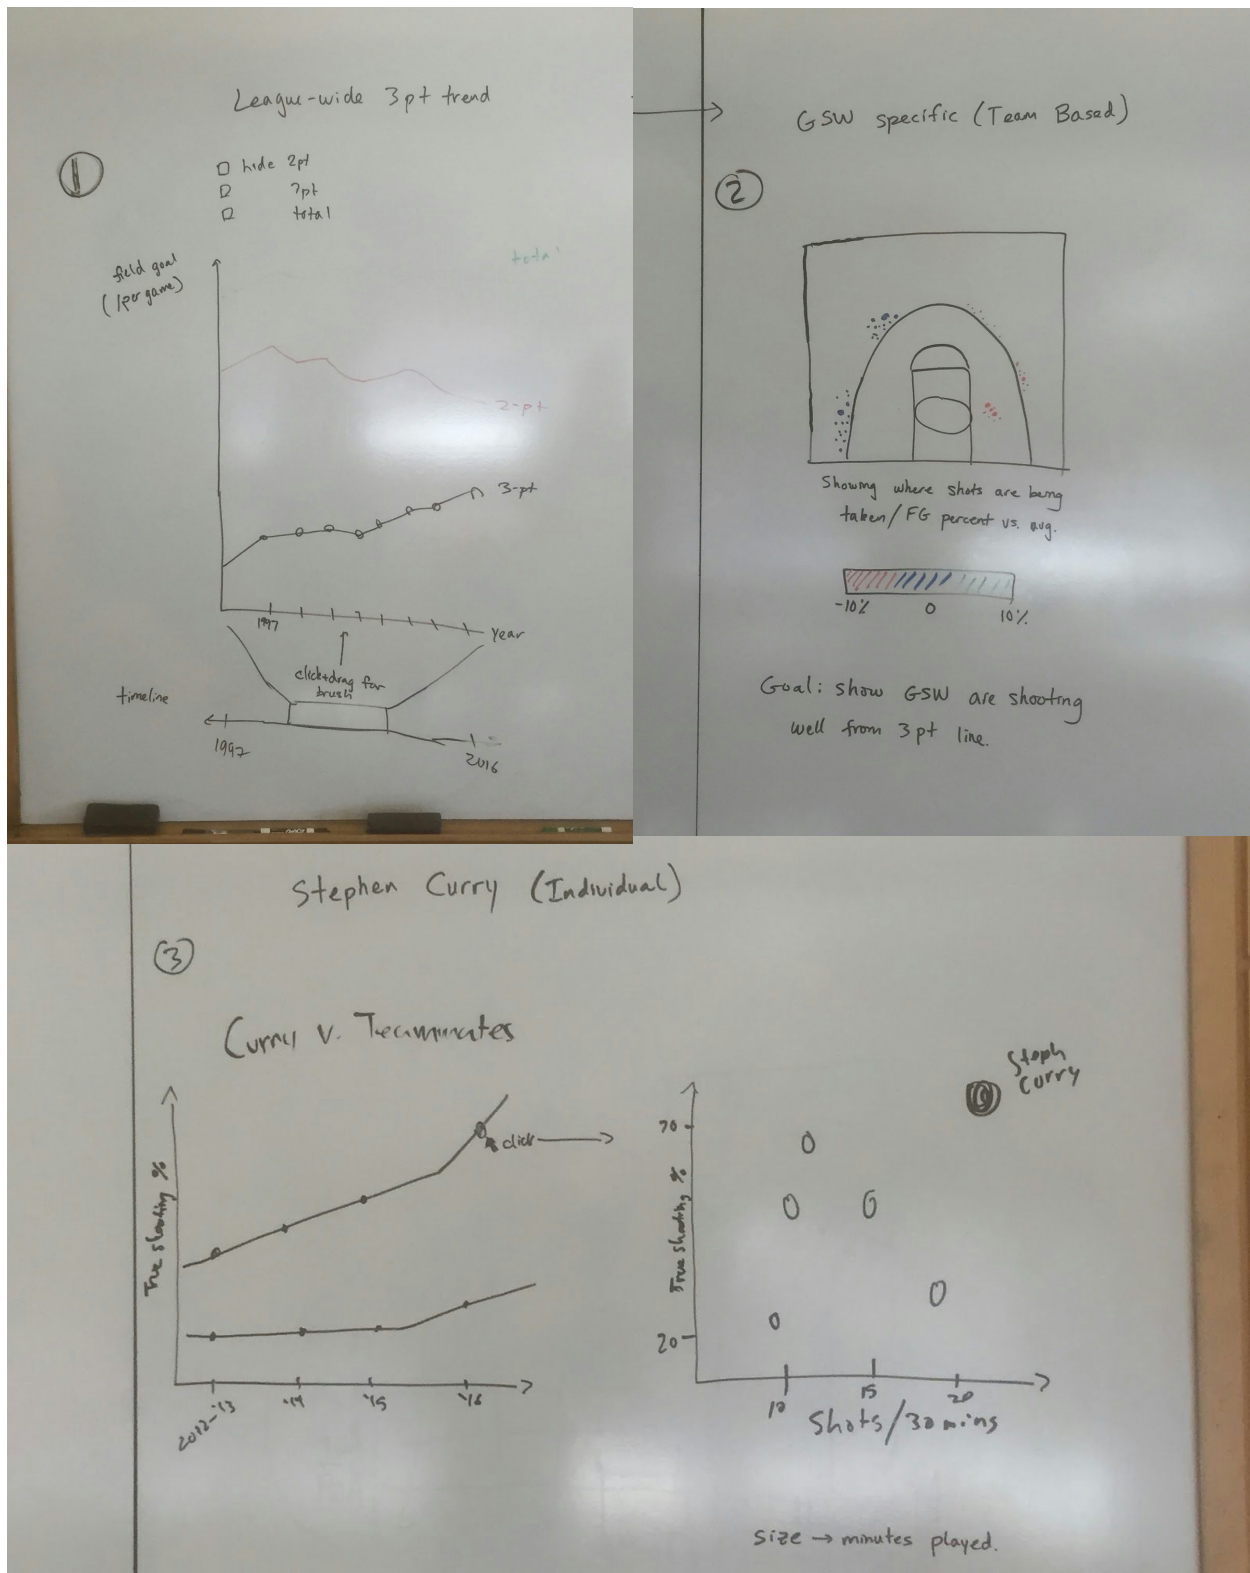 League-wide 3pt trend
1
hide 2pt
3pt
total
field goal
(per game)
total
2-pt
3-pt
1997
year
click+drag for
brush
timeline
1997
2016
GSW specific (Team Based)
2
Showing where shots are being
taken/FG percent vs. avg.
-10%
0
10%
Goal: show GSW are shooting
well from 3pt line.
Stephen Curry (Individual)
3
Curry v. Teammates
True shooting %
click
2012-'13
'14
'15
'16
Steph
Curry
70
True shooting %
20
10
15
20
Shots/30 mins
size → minutes played.